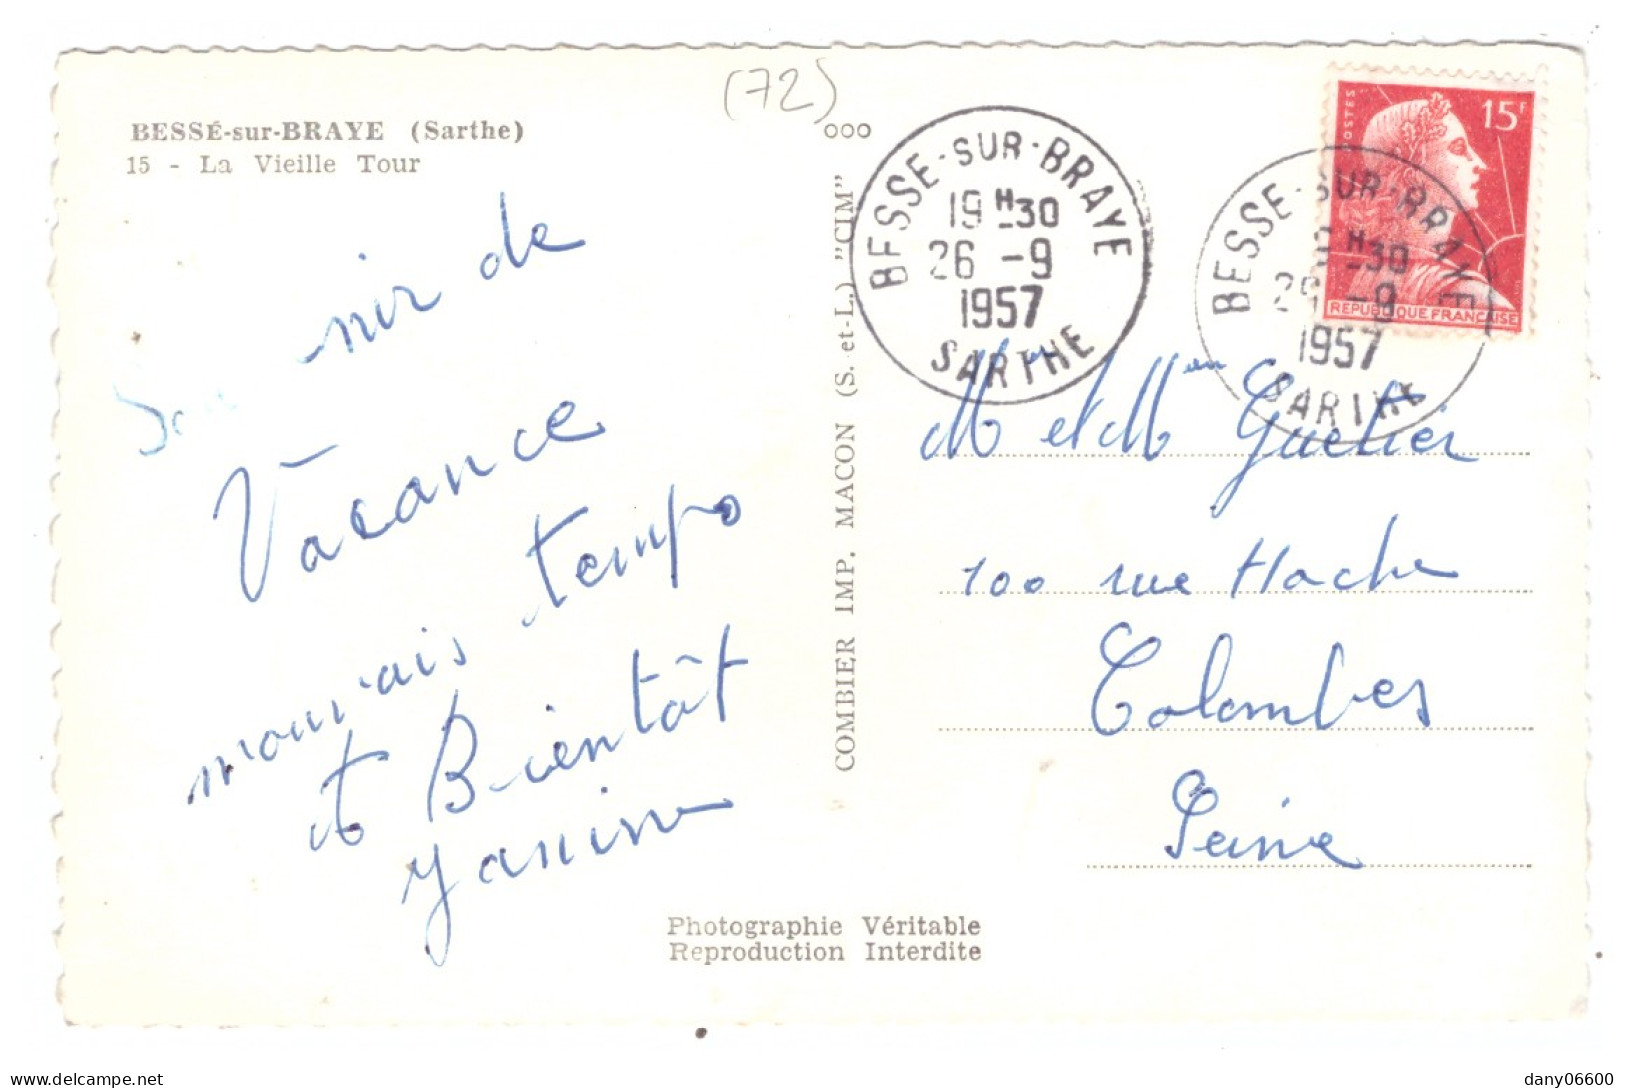 (72)
BESSÉ-sur-BRAYE (Sarthe)
15 - La Vieille Tour
ooo
BESSE-SUR-BRAYE
19 H 30
26 - 9
1957
SARTHE
POSTES
15F
REPUBLIQUE FRANÇAISE
BESSE-SUR-BRAYE
9 H 30
26 - 9
1957
SARTHE
Sou nir de
Vacance
mauvais temps
et Bientôt
Yanine
COMBIER IMP. MACON (S.-et-L.) "CIM"
M et Mme
100 rue Hoche
Colombes
Seine
Photographie Véritable
Reproduction Interdite
delcampe.net
dany06600